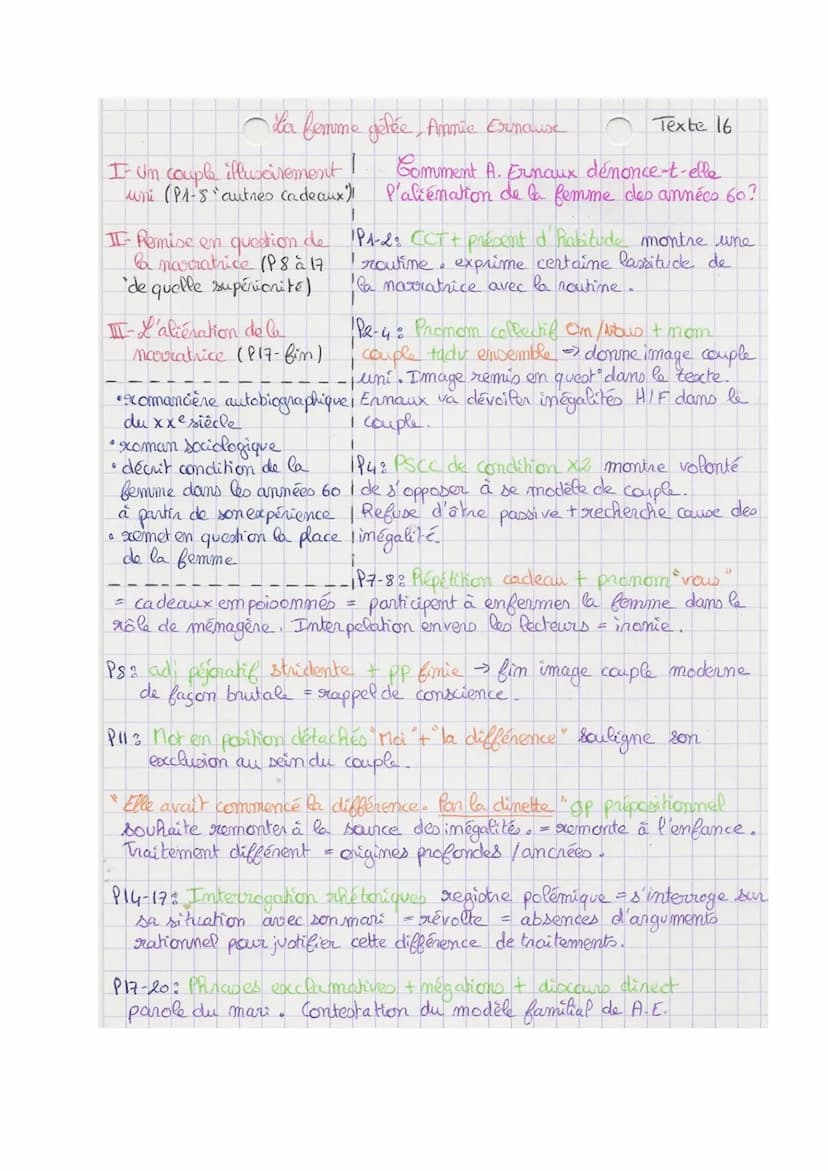 La femme gelée, Annie Ernaux
Texte 16
I- Un couple illusoirement
uni (P1-8 "autres cadeaux")
II- Remise en question de
la narratrice (P8 à 17
"de quelle supériorité)
III- L'aliénation de la
narratrice (P17-fin)
• romancière autobiographique
du XXe siècle
• roman sociologique
• décrit condition de la
femme dans les années 60
à partir de son expérience
• remet en question la place
de la femme
Comment A. Ernaux dénonce-t-elle
l'aliénation de la femme des années 60?
P1-2: CCT + présent d'habitude montre une
routine. exprime certaine lassitude de
la narratrice avec la routine.
P2-4: Pronom collectif On/Nous + nom
couple + adv ensemble => donne image couple
uni. Image remis en quest° dans le texte.
Ernaux va dévoiler inégalités H/F dans le
couple.
P4: PSCC de condition X2 montre volonté
de s'opposer à se modèle de couple.
Refuse d'être passive + recherche cause des
inégalité.
P7-8: Répétition cadeau + pronom "vous"
= cadeaux empoisonnés = participent à enfermer la femme dans le
rôle de ménagère. Interpelation envers les lecteurs = ironie.
P8: adj péjoratif stridente + pp finie -> fin image couple moderne
de façon brutale = rappel de conscience.
P11: Mot en position détachés "Moi" + "la différence" souligne son
exclusion au sein du couple.
"Elle avait commencé la différence. Par la dinette" gp prépositionnel
souhaite remonter à la source des inégalités. = remonte à l'enfance.
Traitement différent = origines profondes / ancrées.
P14-17: Interrogation rhétoriques registre polémique = s'interroge sur
sa situation avec son mari = révolte = absences d'arguments
rationnel pour justifier cette différence de traitements.
P17-20: Phrases exclamatives + négations + discours direct
parole du mari. Contestation du modèle familial de A.E.